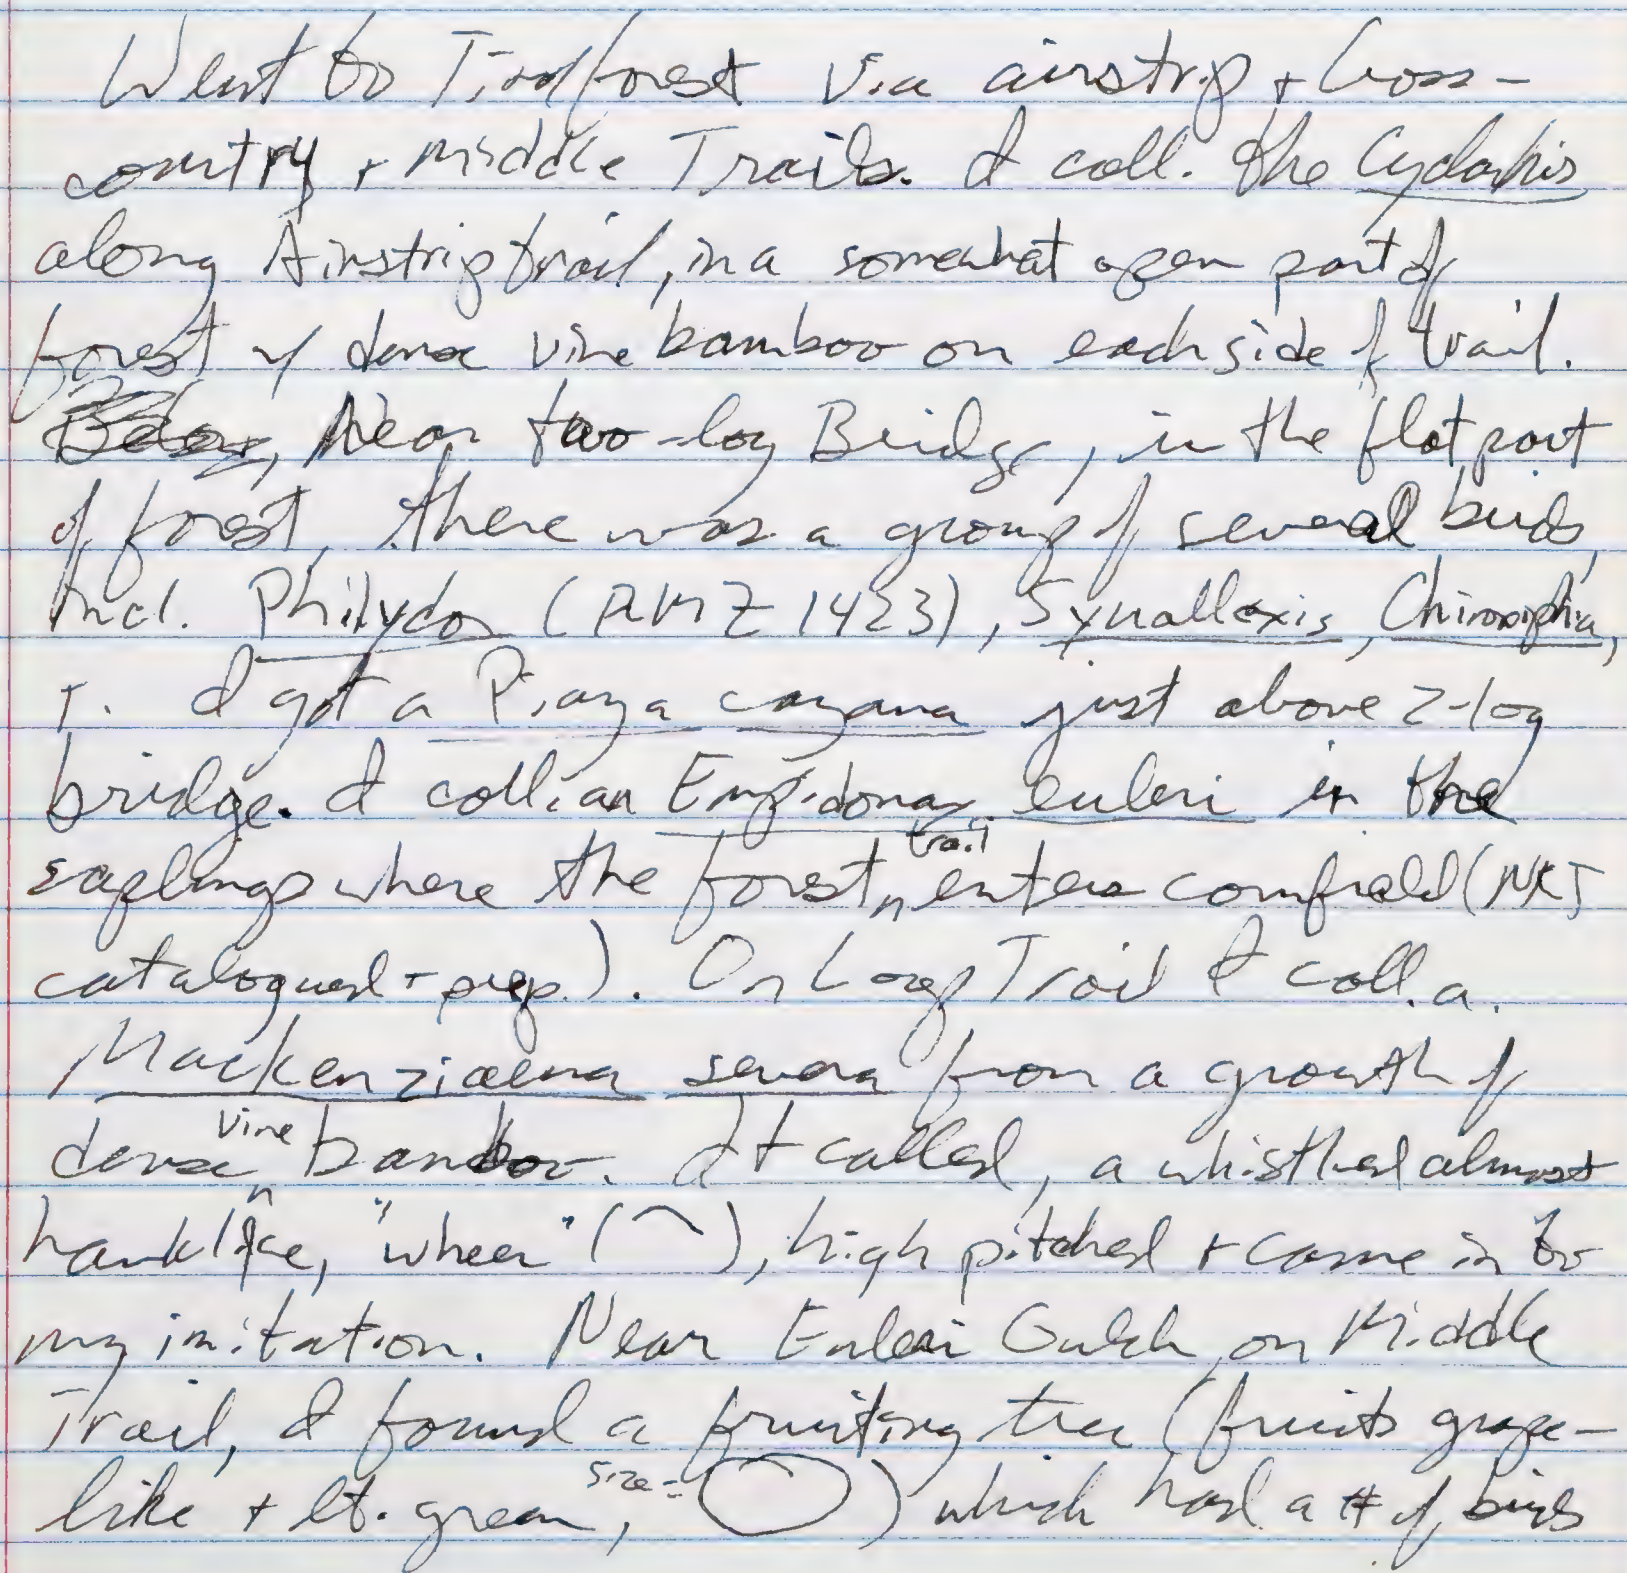 Went to Tirolforest via airstrip + Cross-
country + Middle Trails. I coll. the Cyclarhis
along Airstrip trail, in a somewhat open part of
forest w/ dense vine bamboo on each side of trail.
Near two-log Bridge, in the flat part
of forest, there was a group of several birds,
incl. Philydor (RMZ 1423), Synallaxis, Chiroxiphia,
+. I got a Piaya cayana just above 2-log
bridge. I coll. an Empidonax euleri in the
saplings where the forest trail enters cornfield (NKJ
catalogued + prep.). On Loop Trail I coll. a
Mackenziaena severa from a growth of
dense vine bamboo. It called, a whistled almost
hawklike, "wheer" (⌒), high pitched + came in to
my imitation. Near Euleri Gulch, on Middle
Trail, I found a fruiting tree (fruits grape-
like + lt. green, size = ) which had a # of birds